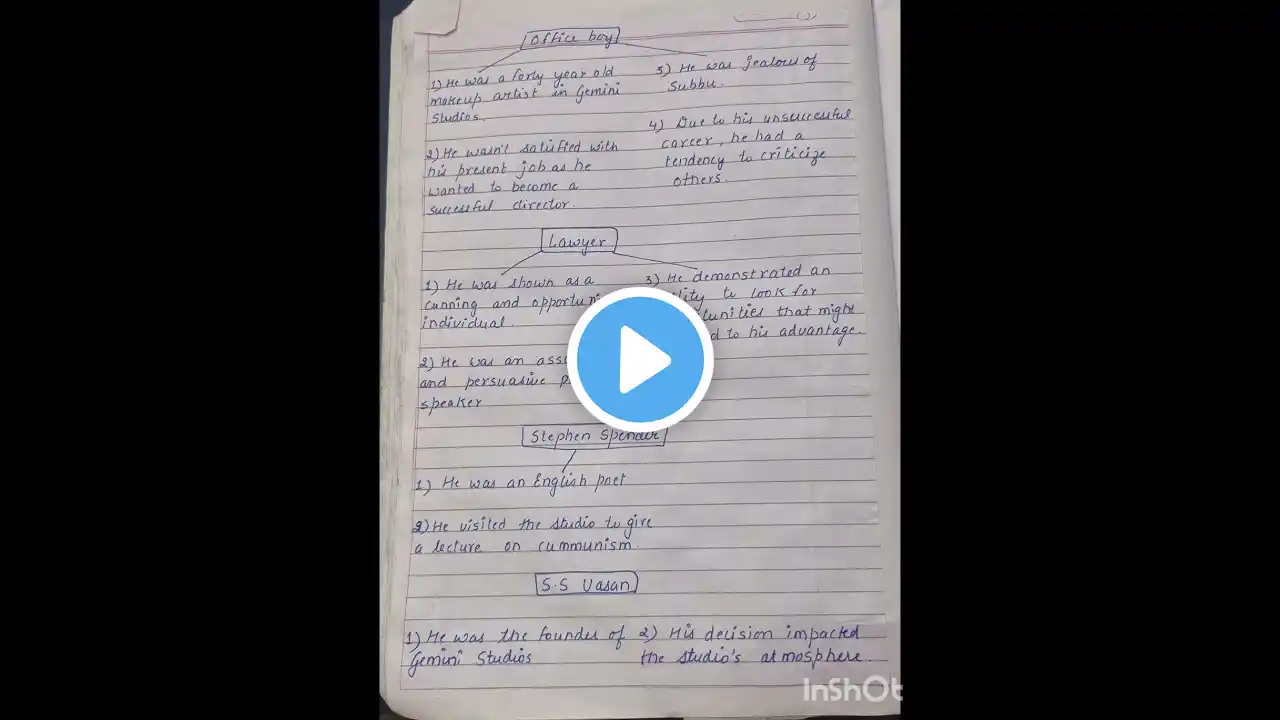 Office boy
1) He was a forty year old
makeup artist in Gemini
Studios.
2) He wasn't satisfied with
his present job as he
wanted to become a
successful director.
3) He was jealous of
Subbu.
4) Due to his unsuccessful
career, he had a
tendency to criticize
others.
Lawyer
1) He was shown as a
cunning and
individual.
2) He was an
and persuasive
speaker
3) He demonstrated an
to look for
that might
to his advantage.
Stephen Spender
1) He was an English poet
2) He visited the studio to give
a lecture on cummunism.
S.S Vasan
1) He was the founder of
Gemini Studios
2) His decision impacted
the studio's atmosphere.
InShOt